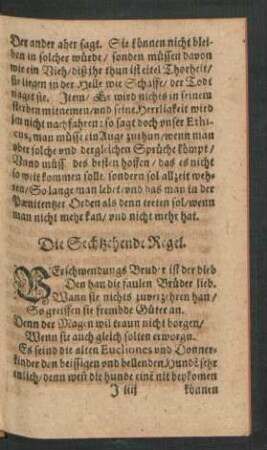 Der ander aber sagt. Sie können nicht blei-
ben in solcher würde/ sonden müssen davon
wie ein Vieh/ diß ihr thun ist eitel Thorheit/
sie liegen in der Helle wie Schaffe/ der Todt
naget sie. Item/ Er wird nichts in seinem
sterben mienemen/ und seine Herrligkeit wird
jm nicht nachfahren: so sagt doch unser Ethi-
cus, man müsse ein Auge zuthun/ wenn man
uber solche und dergleichen Sprüche kömpt/
Vnnd müss des besten hoffen/ das es nicht
so weit kommen solle. sondern sol allzeit weh-
ren/ So lange man lebet/ und das man in der
Pænitentzer Orden als denn treten sol/ wenn
man nicht mehr kan/ und nicht mehr hat.
Die Sechtzehende Regel.
VErschwendungs Bruder ist der dieb
Den han die faulen Brüder lieb.
Wann sie nichts zuverzehren han/
So greiffen sie frembde Güter an.
Denn der Magen wil traun nicht borgen/
Wenn sie auch gleich solten erworgn.
Es seind die alten Eucliones und Donner-
kinder den beissigen und bellenden Hundē sehr
enlich/ denn weñ die hunde einē nit beykomen
J iiij können